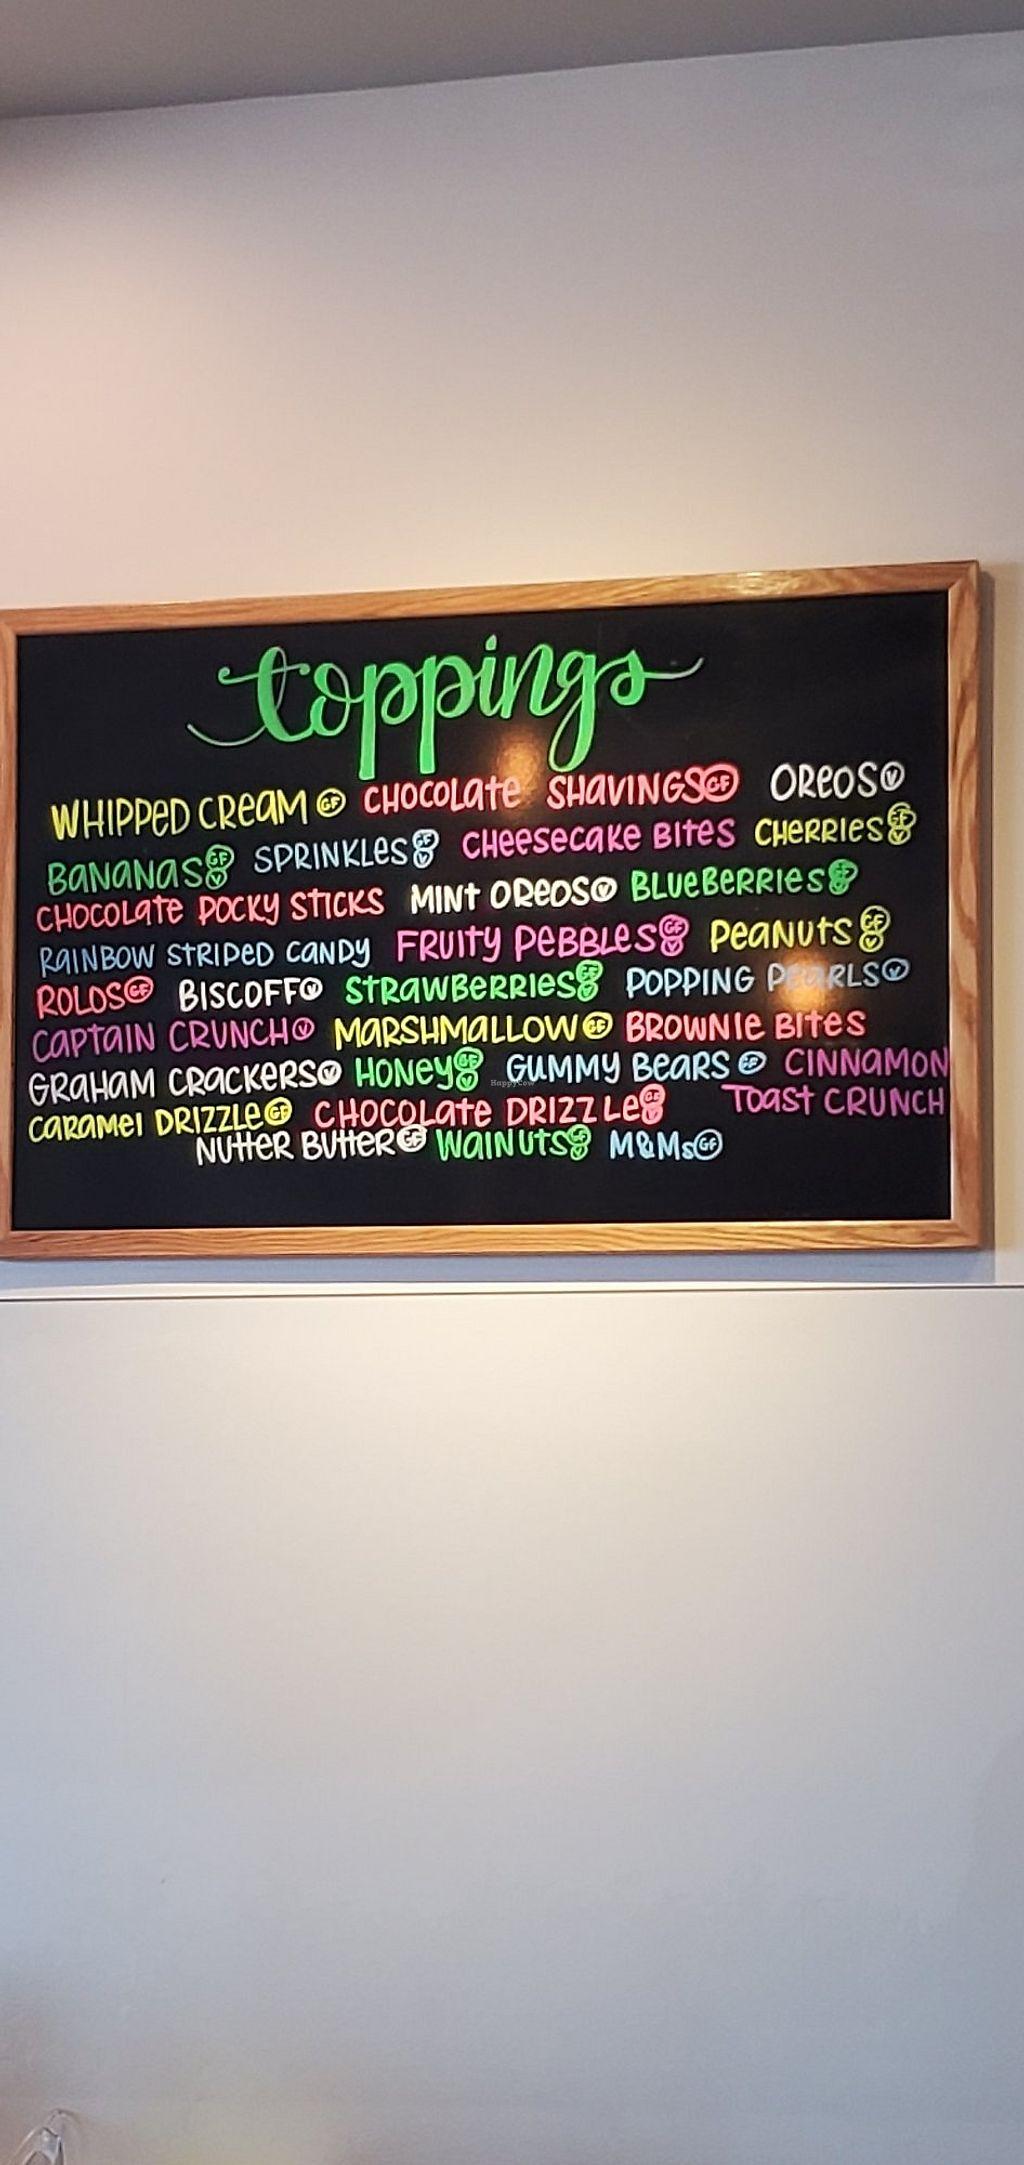 toppings
WHIPPED CREAM GF CHOCOLATE SHAVINGS GF OREOS V
BANANAS GF V SPRINKLES GF V CHEESECAKE BITES CHERRIES GF V
CHOCOLATE POCKY STICKS MINT OREOS V BLUEBERRIES GF V
RAINBOW STRIPED CANDY FRUITY PEBBLES GF V PEANUTS GF V
ROLOS GF BISCOFF V STRAWBERRIES GF V POPPING PEARLS V
CAPTAIN CRUNCH V MARSHMALLOW GF BROWNIE BITES
GRAHAM CRACKERS V HONEY GF V GUMMY BEARS GF CINNAMON
CARAMEL DRIZZLE GF CHOCOLATE DRIZZLE GF V TOAST CRUNCH
NUTTER BUTTER GF WALNUTS GF V M&Ms GF
HappyCow